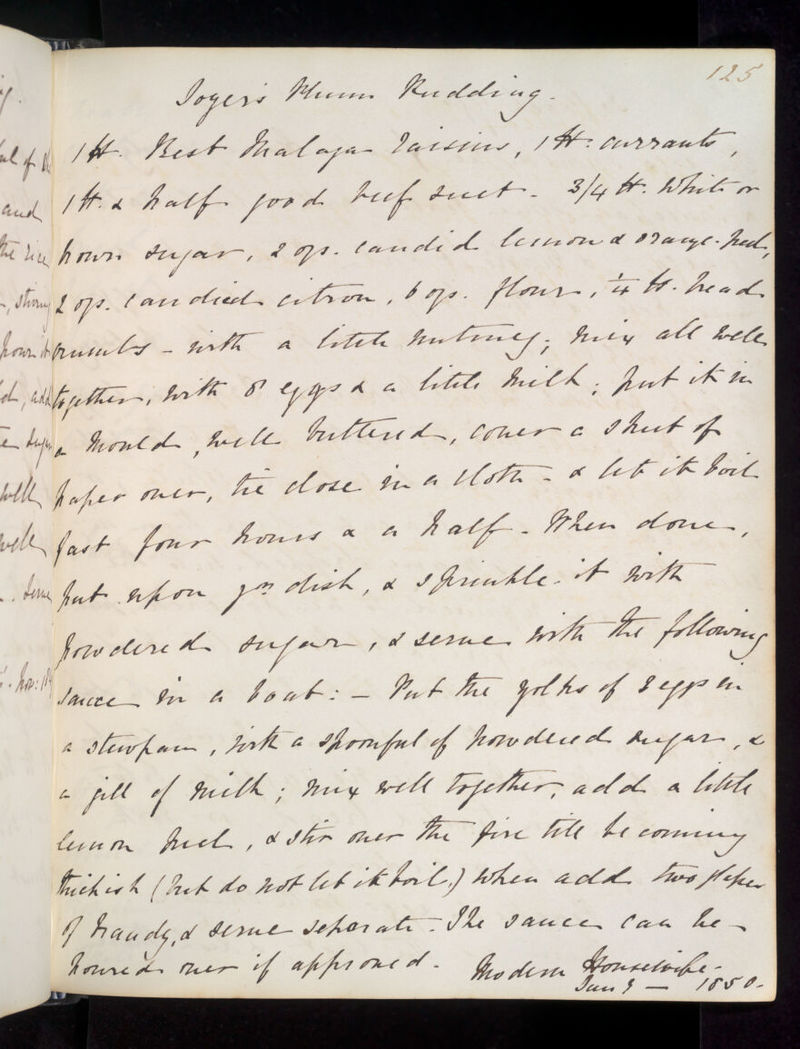 125
Soyer's Plum Pudding.
1 lb. Best Malaga raisins, 1 lb. currants,
1 lb. & half good beef suet - 3/4 lb. White or
brown sugar, 2 oz. candid lemon & orange-peel,
2 oz. candied citron, 6 oz. flour, 1/4 lb. bread
crumbs - with a little nutmeg; mix all well
together, with 8 eggs & a little milk; put it in
a mould, well buttered, cover a sheet of
paper over, tie close in a cloth - & let it boil
fast four hours & a half - When done,
put upon yr dish, & sprinkle it with
powdered sugar, & serve with the following
sauce in a boat: - Put the yolks of 3 eggs in
a stewpan, with a spoonful of powdered sugar, &
a gill of milk; mix well together, add a little
lemon peel, & stir over the fire till becoming
thickish (but do not let it boil,) when add two glasses
of brandy, & serve separate - The sauce can be
poured over if approved - Modern Housewife -
Jan 9 - 1850 -
ul of
and
the rice
, strong
brown
d, add
well
well
. Serve
Nov: 18